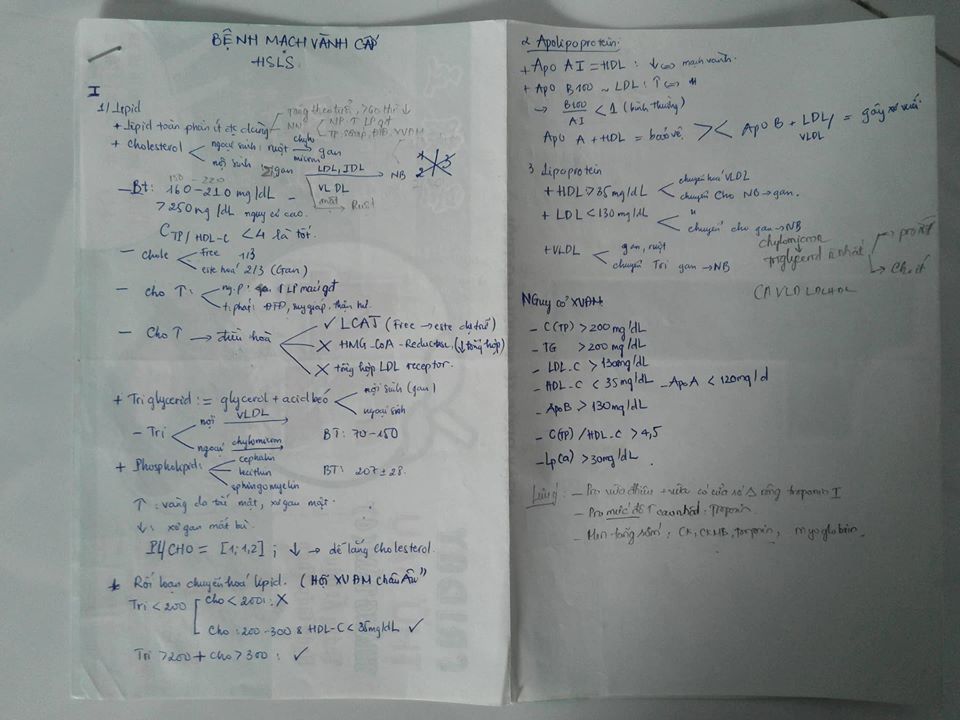 BỆNH MẠCH VÀNH CẤP
HSLS
I
1/ Lipid
+ Lipid toàn phần ít đc dùng
tăng theo tuổi, >60 thì ↓
NN
NP: ↑ LP gđ
TP: SGiáp, ĐTĐ, XVĐM
+ Cholesterol
ngoại sinh: ruột chylo micron → gan
nội sinh: gan LDL, IDL → NB
VLDL
mật → Ruột
2 3
150 - 220
- Bt: 160 - 210 mg/dL
> 250 mg/dL nguy cơ cao.
C TP / HDL-C < 4 là tốt.
- Chole
Free 1/3
este hoá 2/3 (Gan)
- Cho ↑:
ng.P: ↑ LP máu gđ
t.phát: ĐTĐ, suy giáp, thận hư.
- Cho ↑ → điều hoà
✓ LCAT (Free → este dự trữ)
X HMG-CoA-Reductase (↓ tổng hợp)
X tổng hợp LDL receptor.
+ Triglycerid: = glycerol + acid béo
nội sinh (gan)
ngoại sinh
- Tri
nội VLDL →
ngoại chylomicron →
BT: 70-150
+ Phospholipid:
cephalin
lecithin
sphingomyelin
BT: 207 ± 28.
↑: vàng da tắc mật, xơ gan mật.
↓: xơ gan mất bù
PL/CHO = [1; 1,2] ; ↓ → dễ lắng cholesterol.
* Rối loạn chuyển hoá lipid. (Hội XVĐM châu Âu")
Tri < 200
Cho < 200: X
Cho: 200-300 & HDL-C < 35mg/dL ✓
Tri > 200 + Cho > 300: ✓
2 Apolipoprotein:
+ Apo AI = HDL: ↓ ⇔ mạch vành.
+ Apo B100 ~ LDL: ↑ ⇔ "
→ B100/AI < 1 (bình thường)
Apo A + HDL = bảo vệ >< Apo B + LDL/VLDL = gây xơ vữa.
3 Lipoprotein
+ HDL > 35 mg/dL
chuyển hoá VLDL
chuyển Cho NB → gan.
+ LDL < 130 mg/dL
"
chuyển cho gan → NB
+ VLDL
gan, ruột
chuyển Tri gan → NB
chylomicron
triglycerid nhất
protit
Cho ít
CAVLDLDLHDL
Nguy cơ XVĐM
- C(TP) > 200 mg/dL
- TG > 200 mg/dL
- LDL-C > 130mg/dL
- HDL-C < 35 mg/dL - ApoA < 120mg/d
- ApoB > 130 mg/dL
- C(TP) / HDL-C > 4,5
- Lp(a) > 30mg/dL.
Lưu ý: - Pro vừa đhiệu + vừa có cửa sổ Δ rộng troponin I
- Pro mức độ ↑ cao nhất: Troponin.
- Men tăng sớm: CK, CKMB, troponin, myoglobin.